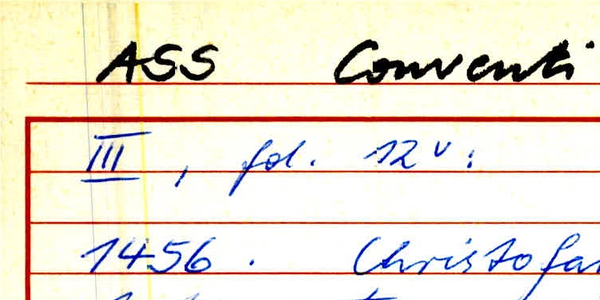 ASS Conventi
III, fol. 12v:
1456. Christofa